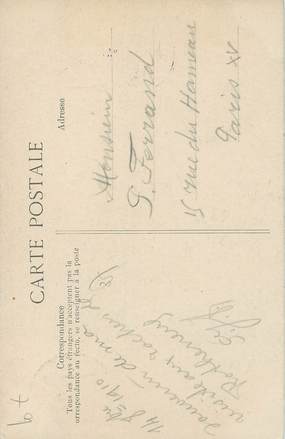 CARTE POSTALE
Correspondance
Tous les pays étrangers n'acceptent pas la
correspondance au recto, se renseigner à la poste
Adresse
14 8bre 1910
Souvenir de ma
visite aux rochers de
Rothéneuf
Monsieur
P. Ferrand
15 rue du Hameau
Paris XV